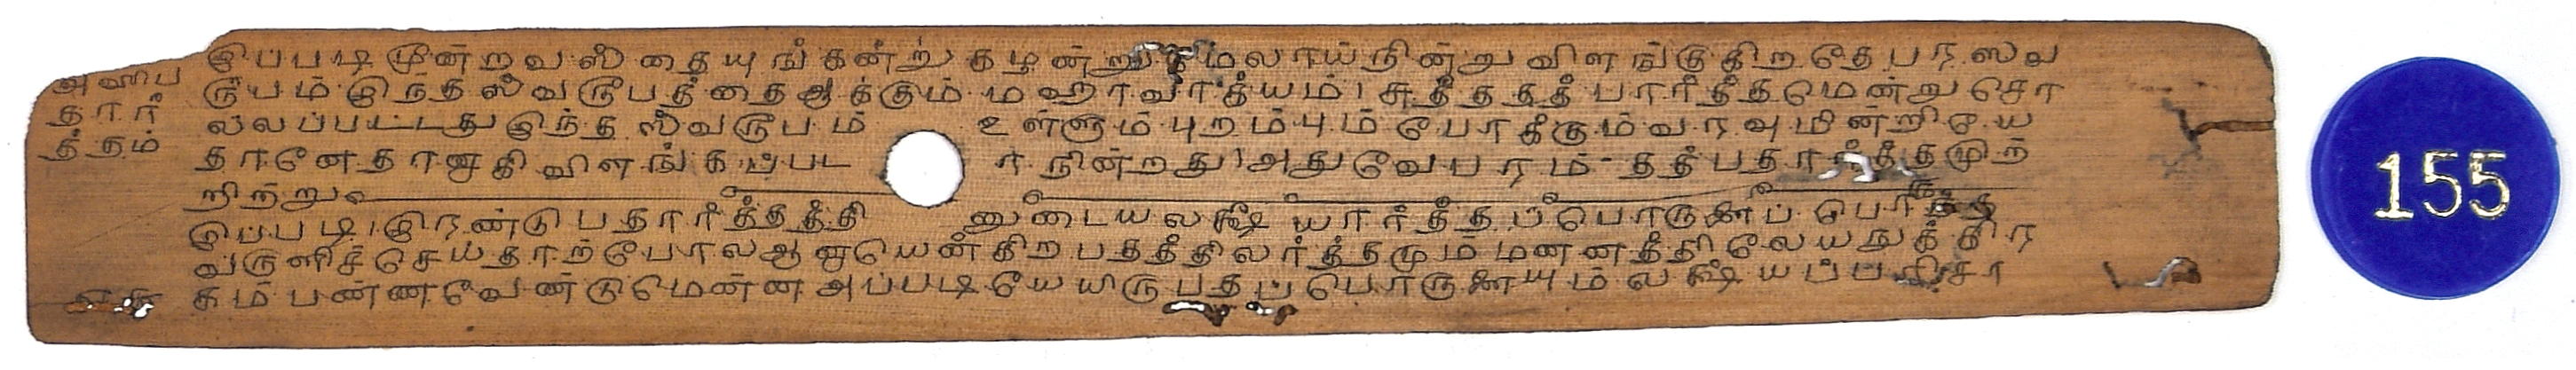 அஸிப
தார்
த்தம்
இப்படி மூன்றவஸ்தையுங்கன்று கழன்று நிமலாய்நின்று விளங்குகிறதே பரஸ்வ
ரூபம் இந்தஸ்வரூபத்தைஆக்கும் மஹாவாக்யம் । சுத்ததத் பார்த்தமென்று சொ
ல்லப்பட்டது இந்த ஸ்வரூபம் உள்ளும் புறம்பும் போக்கும் வரவுமின்றியே
தானே தானாகி விளங்கப்பட ா நின்றது । அதுவே பரம் - தத்பதார்த்தமுற்
றிற்று
இப்படி இரண்டு பதார்த்தத்தி னுடைய லக்ஷியார்த்தப்பொருளைப் பொருந்த
வருளிச்செய்தாற்போல ஆனாயென்கிற பதத்திலர்த்தமும் மனனத்திலேயநுக்கிர
கம் பண்ணவேண்டுமென்ன அப்படியேயிருபதப்பொருளையும் லக்ஷியப்பரிசா
155